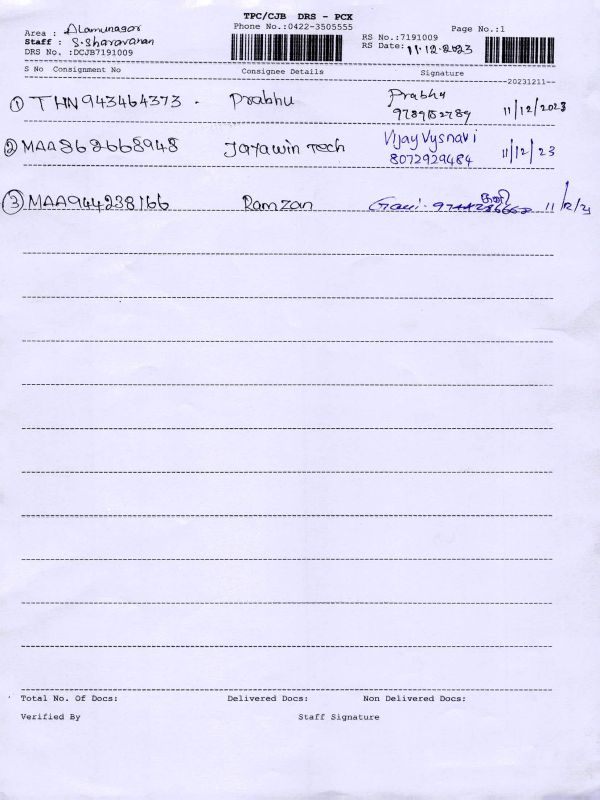 TPC/CJB DRS - PCX
Area : Alamunagar Phone No.:0422-3505555 Page No.:1
Staff : S.Sharavanan RS No.:7191009
DRS No. :DCJB7191009 RS Date: 11.12.2023
S No Consignment No Consignee Details Signature
20231211
① THN943464373 . Prabhu Prabhu
9789152789 11/12/2023
② MAA862668948 Jayawin Tech Vijay Vysnavi
8072929484 11/12/23
③ MAA944238166 Ramzan 11/12/23
Total No. Of Docs: Delivered Docs: Non Delivered Docs:
Verified By Staff Signature